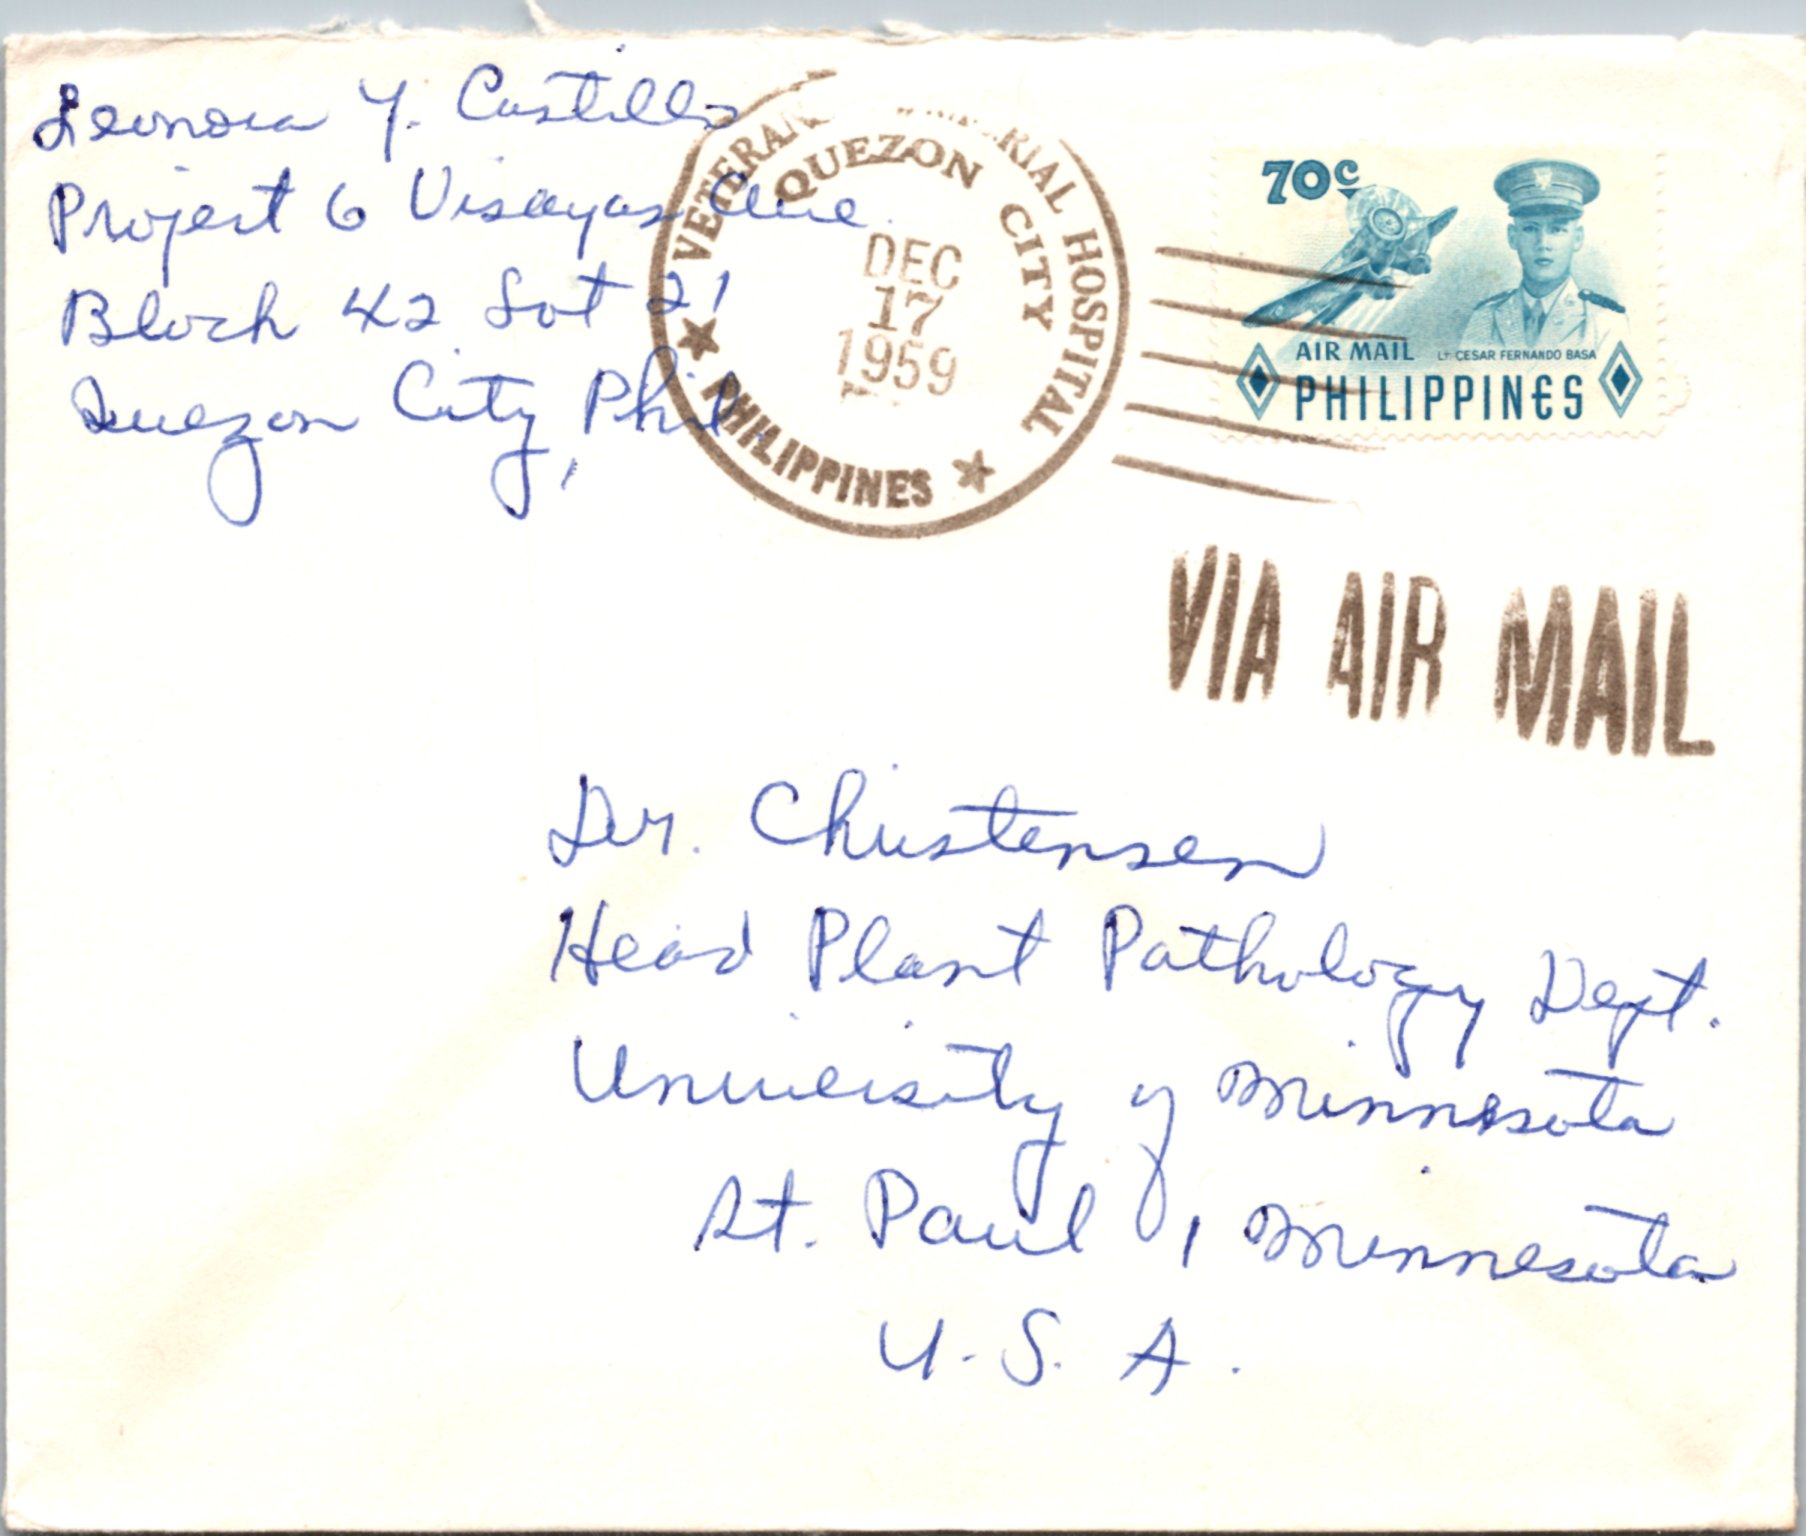 Leonora Y. Castillo
Project 6 Visayas Ave.
Block 42 Lot 21
Quezon City, Phil.
VETERANS MEMORIAL HOSPITAL
QUEZON CITY
DEC
17
1959
PHILIPPINES
70c
AIR MAIL LT. CESAR FERNANDO BASA
PHILIPPINES
VIA AIR MAIL
Dr. Christensen
Head Plant Pathology Dept.
University of Minnesota
St. Paul 1, Minnesota
U.S.A.